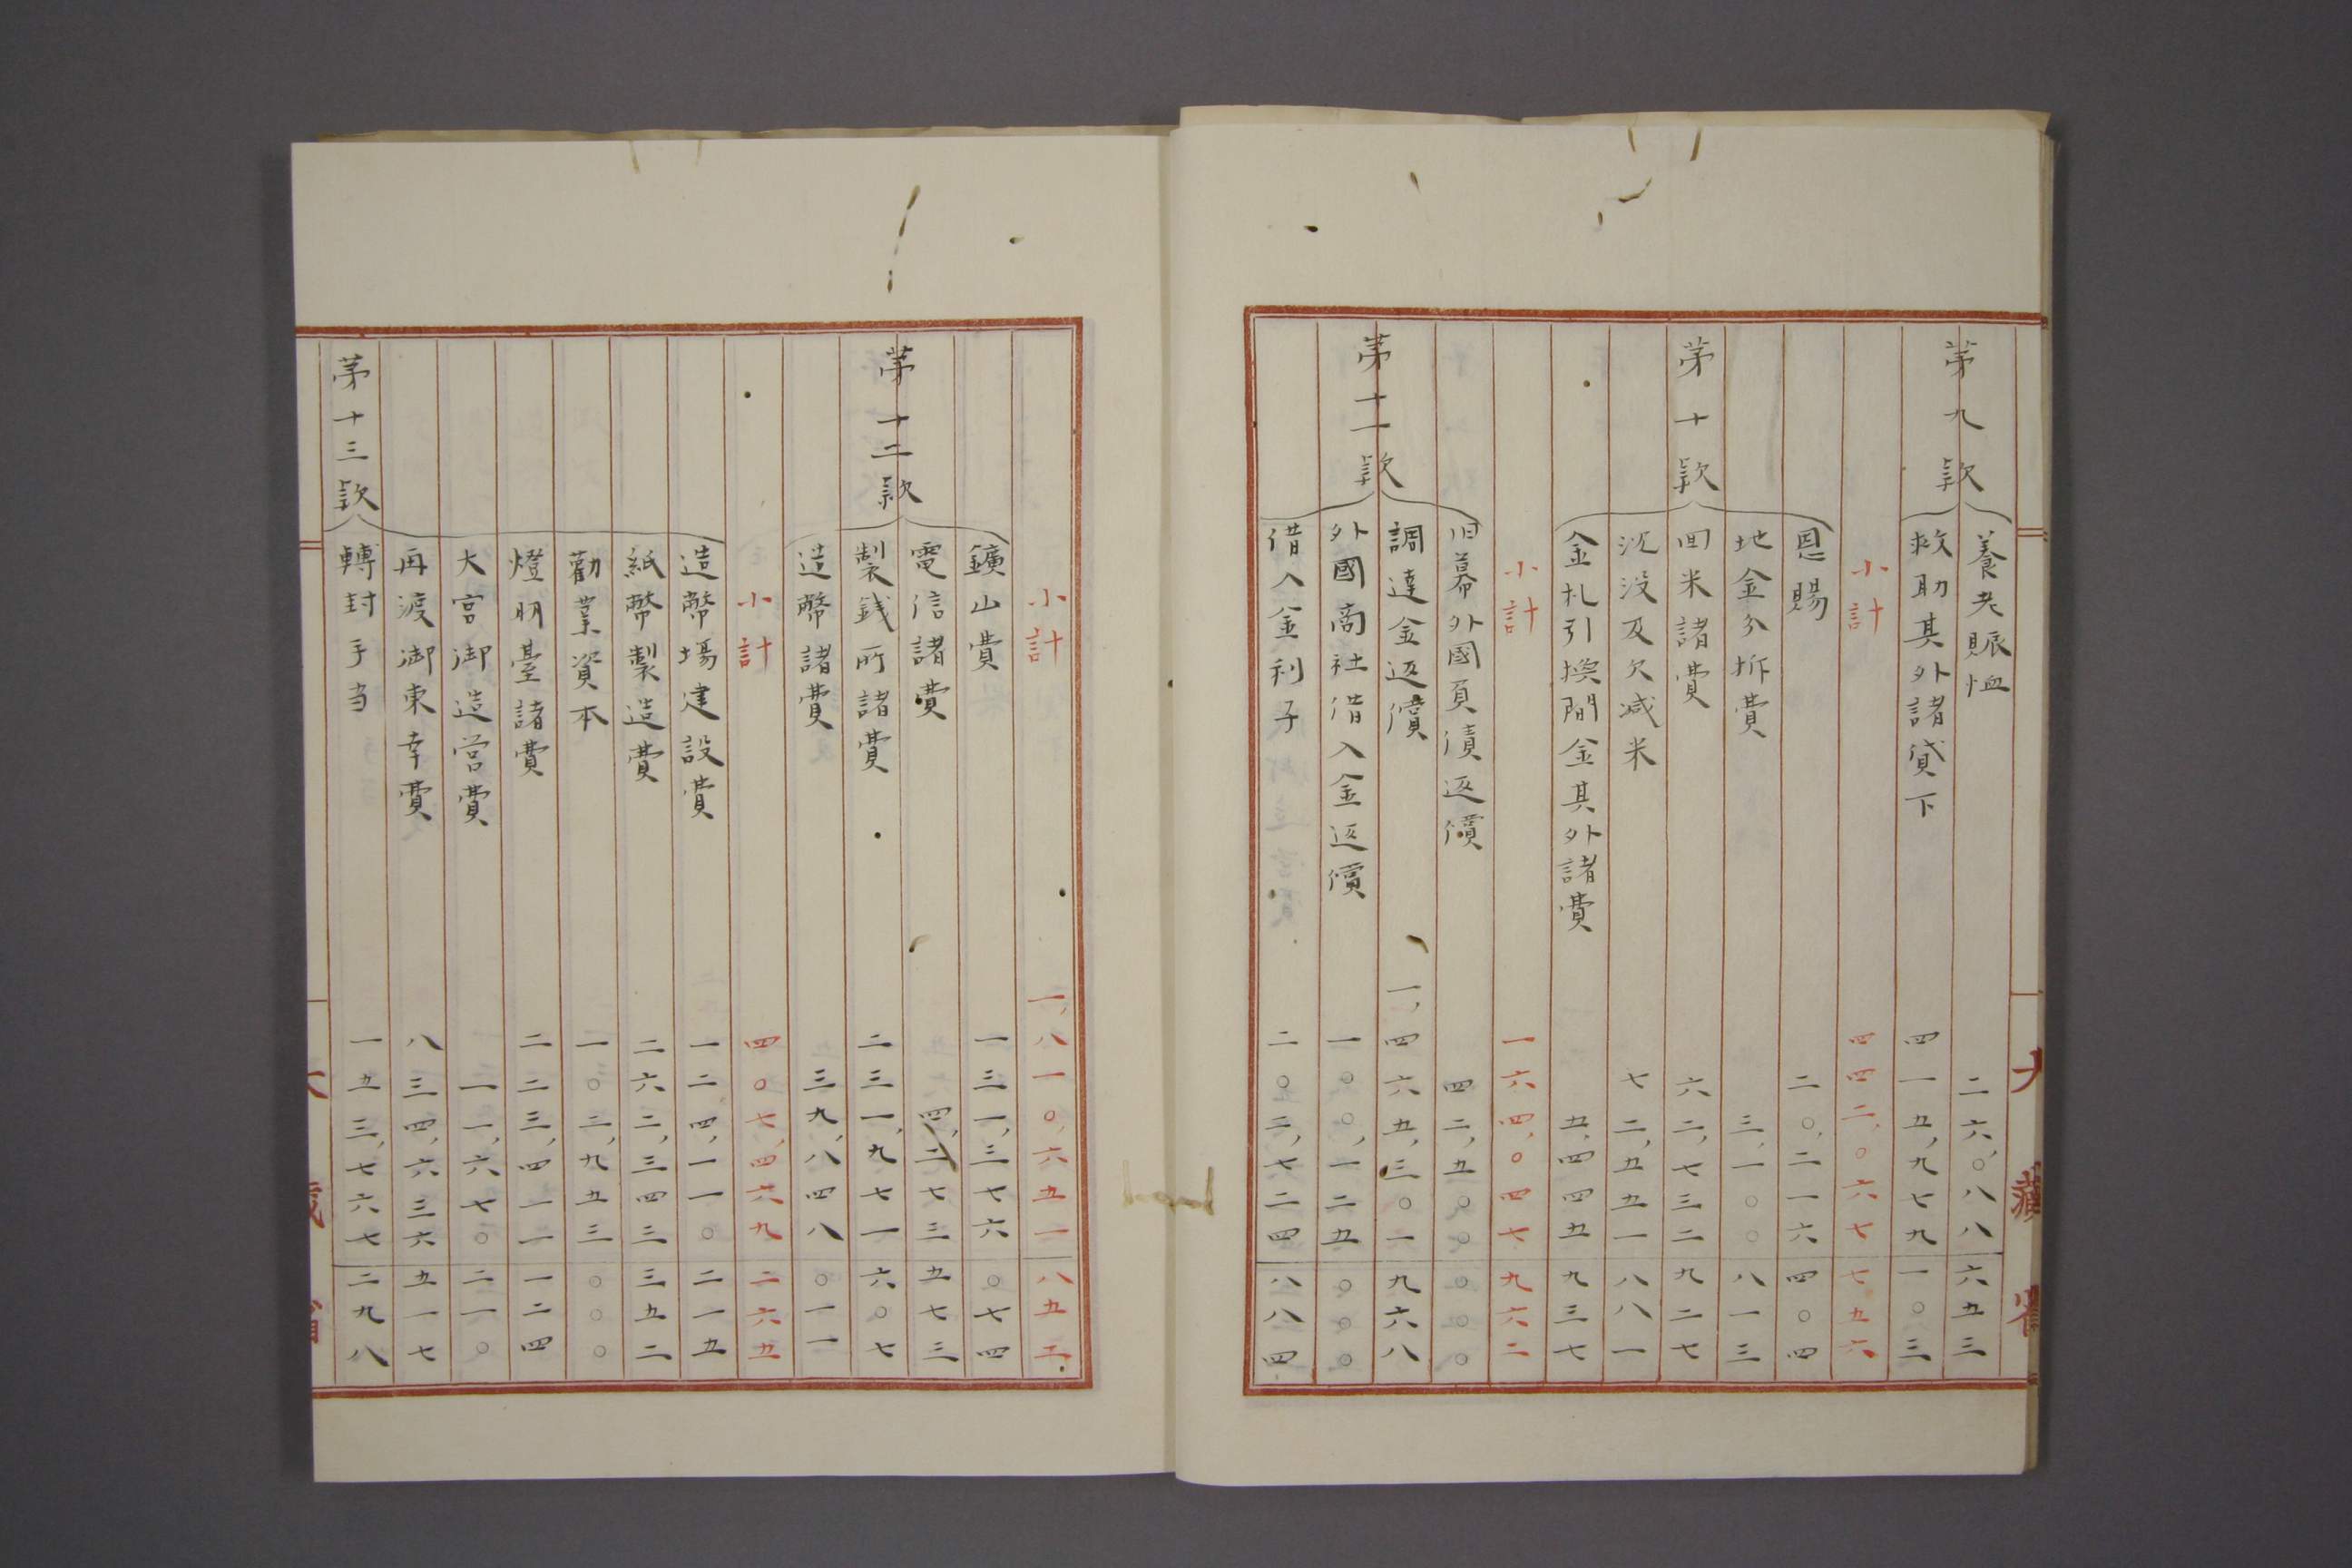 大藏省
第九款
養老賑恤 二六,〇八八 六五三
救助其外諸貸下 四一五,九七九 一〇三
小計 四四二,〇六七 七五六
第十款
恩賜 二〇,二一六 四〇四
地金分拆費 三,一〇〇 八一三
回米諸費 六二,七三二 九二七
沈没及欠減米 七二,五五一 八八一
金札引換間金其外諸費 五,四四五 九三七
小計 一六四,〇四七 九六二
第十一款
旧幕外國負債返償 四二,五〇〇 〇〇〇
調達金返償 一,四六五,三〇一 九六八
外國商社借入金返償 一〇〇,一二五 〇〇〇
借入金利子 二〇二,七二四 八八四
小計 一,八一〇,六五一 八五二
第十二款
鑛山費 一三一,三七六 〇七四
電信諸費 四,二七三 五七三
製銭所諸費 二三一,九七一 六〇七
造幣諸費 三九,八四八 〇一一
小計 四〇七,四六九 二六五
第十三款
造幣場建設費 一二四,一一〇 二一五
紙幣製造費 二六二,三四三 三五二
勸業資本 一〇三,九五三 〇〇〇
燈明臺諸費 二二三,四一一 一二四
大宮御造営費 一一,六七〇 二一〇
再渡御東幸費 八三四,六三六 五一七
轉封手当 一五三,七六七 二九八